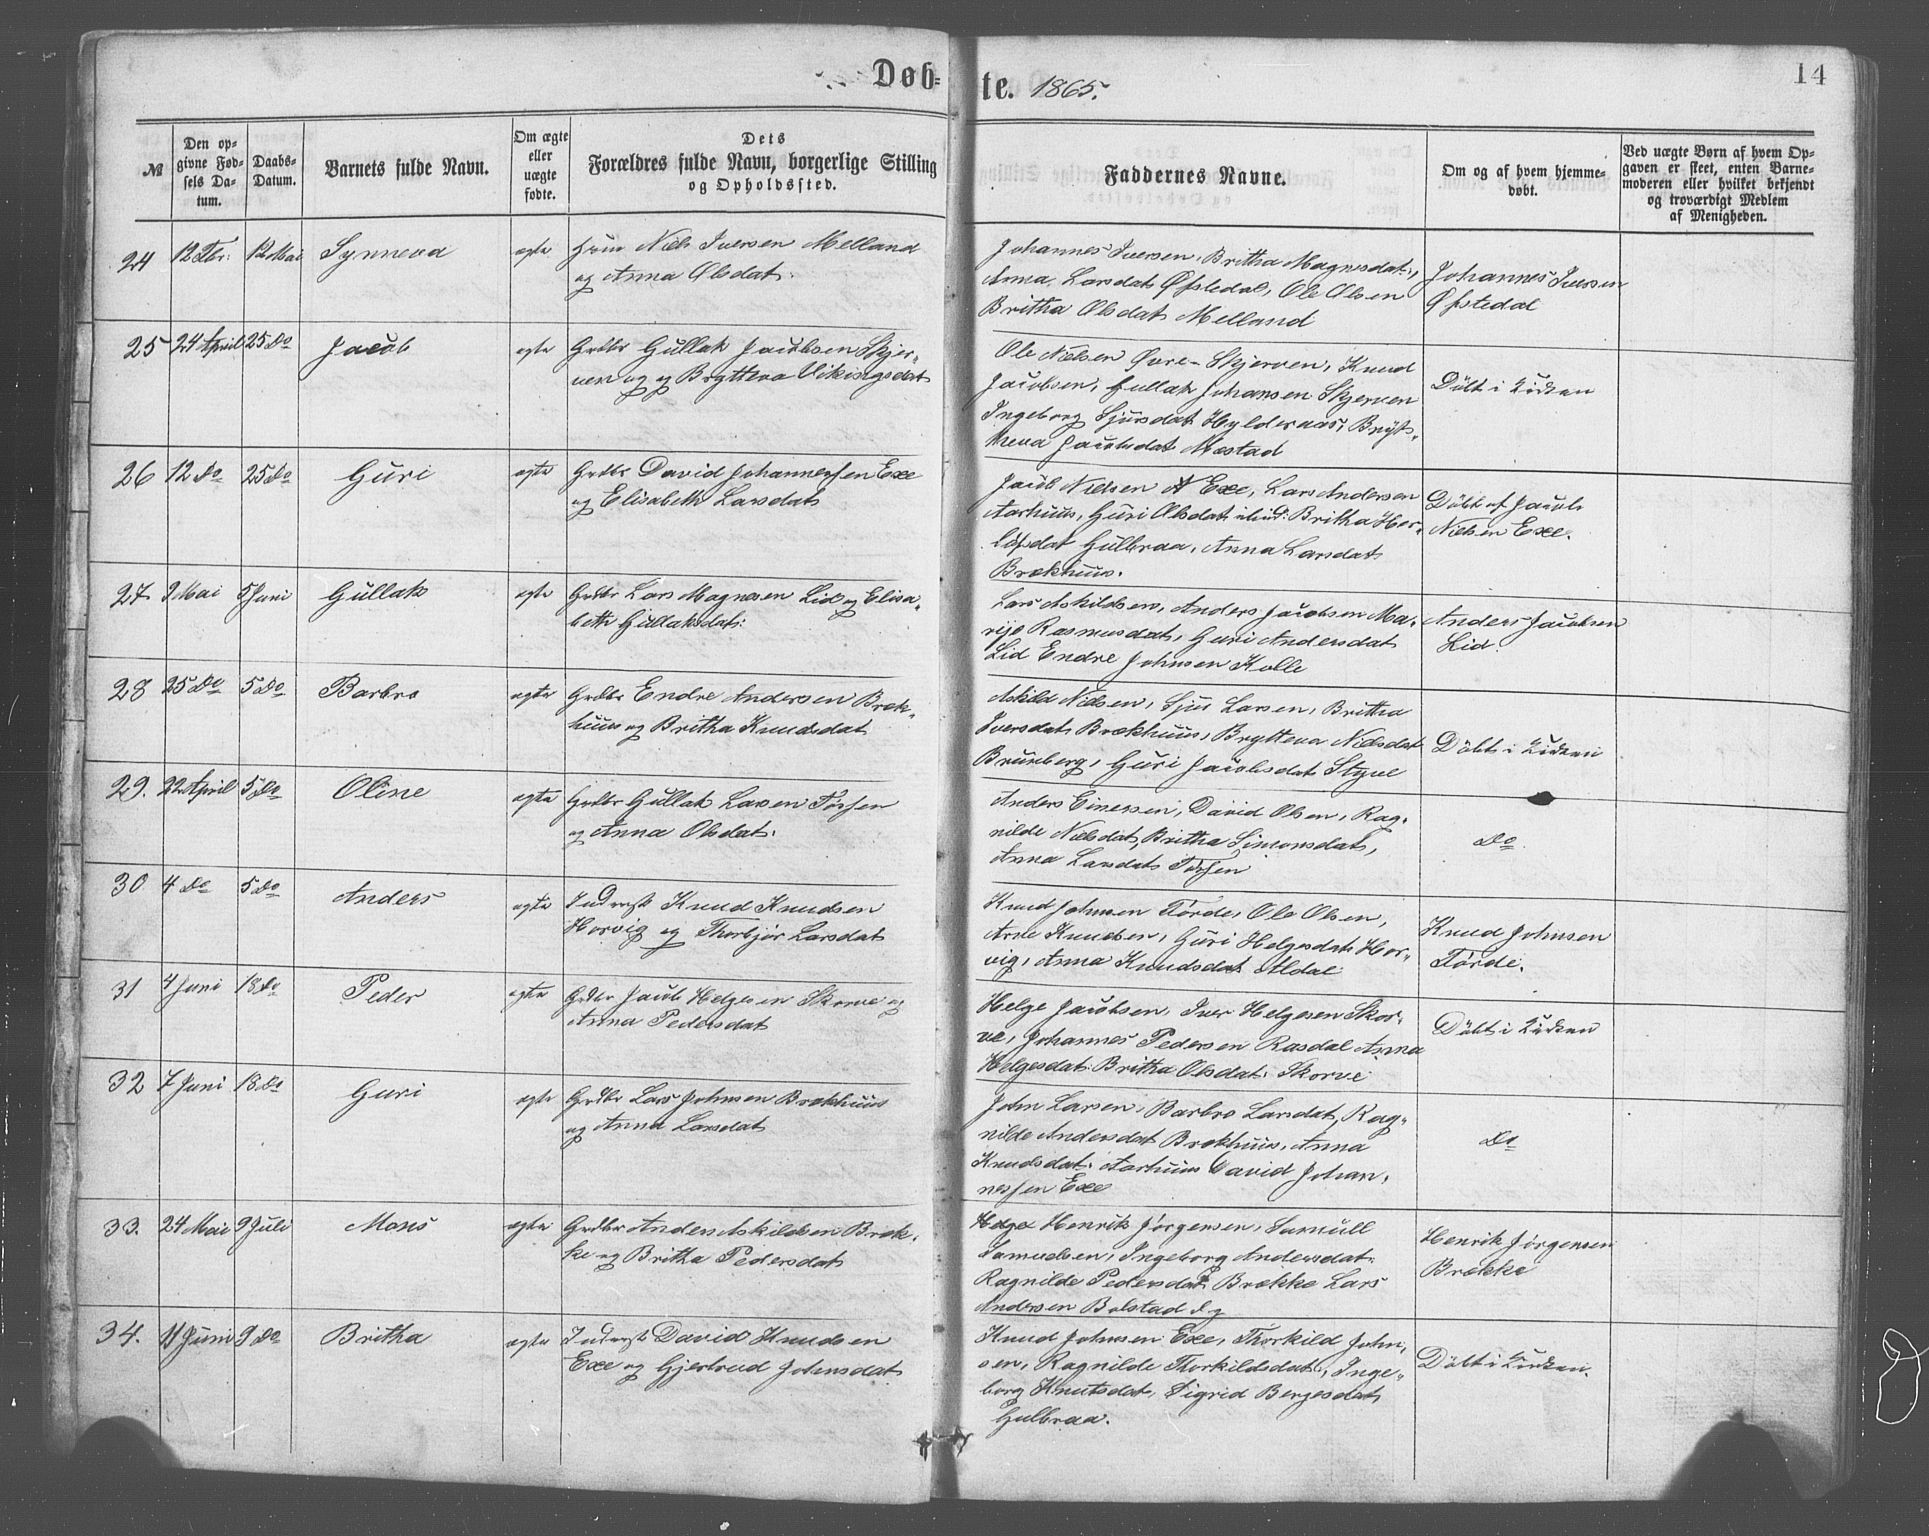 Døb-
te. 1865.
14
№
Den op-
givne Fød-
sels Da-
tum.
Daabs-
Datum.
Barnets fulde Navn.
Om ægte
eller
uægte
fødte.
Dets
Forældres fulde Navn, borgerlige Stilling
og Opholdssted.
Faddernes Navne.
Om og af hvem hjemme-
døbt.
Ved uægte Børn af hvem Op-
gaven er skeet, enten Barne-
moderen eller hvilket bekjendt
og troværdigt Medlem
af Menigheden.
24 12 Fbr: 12 Mai Synneva ægte Niels Iversen Melland
og Anna Olsdat:
Johannes Iversen, Britha Magnesdat:,
Anna Larsdat Øfstedal, Ole Olsen
Britha Olsdat Melland
Johannes Iversen
Øfstedal
25 24 April 25 Do Jacob ægte Grdbr Gullak Jacobsen Skjer-
ven og og Brytteva Vikingsdat
Ole Nielsen Øvre-Skjerven, Knud
Jacobsen, Gullak Johansen Skjerven
Ingeborg Sjursdat Hylderaas, Bryt-
heva Jacobsdat Mæstad
Döbt i Kirken
26 12 Do 25 Do Guri ægte Grdbr David Johannessen Exe
og Elisabeth Larsdat
Jacob Nielsen Exe, Lars Andersen
Aarhuus, Guri Olsdat Britha Her-
lofsdat Gulbraa, Anna Larsdat
Brækhuus.
Döbt af Jacob
Nielsen Exe.
27 9 Mai 5 Juni Gullak ægte Grdbr Lars Magnesen Lid og Elisa-
beth Gullaksdat:
Lars Askildsen, Anders Jacobsen Ma-
rije Rasmusdat, Guri Andersdat
Lid Endre Johnsen Kolle
Anders Jacobsen
Lid.
28 25 Do 5 Do Barbro ægte Grdbr Endre Andersen Bræk-
huus og Britha Knudsdat
Askild Nielsen, Sjur Larsen, Britha
Iversdat Brækhuus, Brytteva Nielsdat
Brunberg, Guri Jacobsdat Styve
Döbt i Kirken
29. 22 April 5 Do Oline ægte Grdbr Gullak Larsen Fossen
og Anna Olsdat.
Anders Einersen, David Olsen, Rag-
nilde Nielsdat, Britha Simonsdat,
Anna Larsdat Fossen
Do
30 4 Do 5 Do Anders ægte Inderst Knud Knudsen
Horvig og Thorbjør Larsdat
Knud Johnsen Förde, Ole Olsen,
Arne Knudsen, Guri Helgesdat Hor-
vig, Anna Knudsdat Aldal
Knud Johnsen
Förde.
31 4 Juni 18 Do Peder ægte Grdbr Jacob Helgesen Skorve og
Anna Pedersdat
Helge Jacobsen, Iver Helgesen Skor-
ve, Johannes Pedersen Rasdal Anna
Helgesdat: Britha Olsdat: Skorve
Döbt i Kirken
32 7 Juni 18 Do Guri ægte Grdbr Lars Johnsen Brækhuus
og Anna Larsdat
John Larsen, Barbro Larsdat, Rag-
nilde Andersdat Brækhuus, Anna
Knudsdat: Aarhuus David Johan-
nessen Exe
Do
33. 24 Mai 9 Juli Mons ægte Grdbr Anders Askildsen Bræk-
ke og Britha Pedersdat
Henrik Jørgensen, Samuel
Samuelsen, Ingeborg Andersdat:
Ragnilde Pedersdat Brække Lars
Andersen Bolstad
Henrik Jørgensen
Brække
34. 11 Juni 9 Do Britha ægte Inderst David Knudsen
Exe og Gjertrud Johnsdat
Knud Johnsen Exe, Thorkild John-
sen, Ragnilde Thorkildsdat:, Inge-
borg Knutsdat, Sigrid Bergesdat
Gulbraa.
Döbt i Kirken.